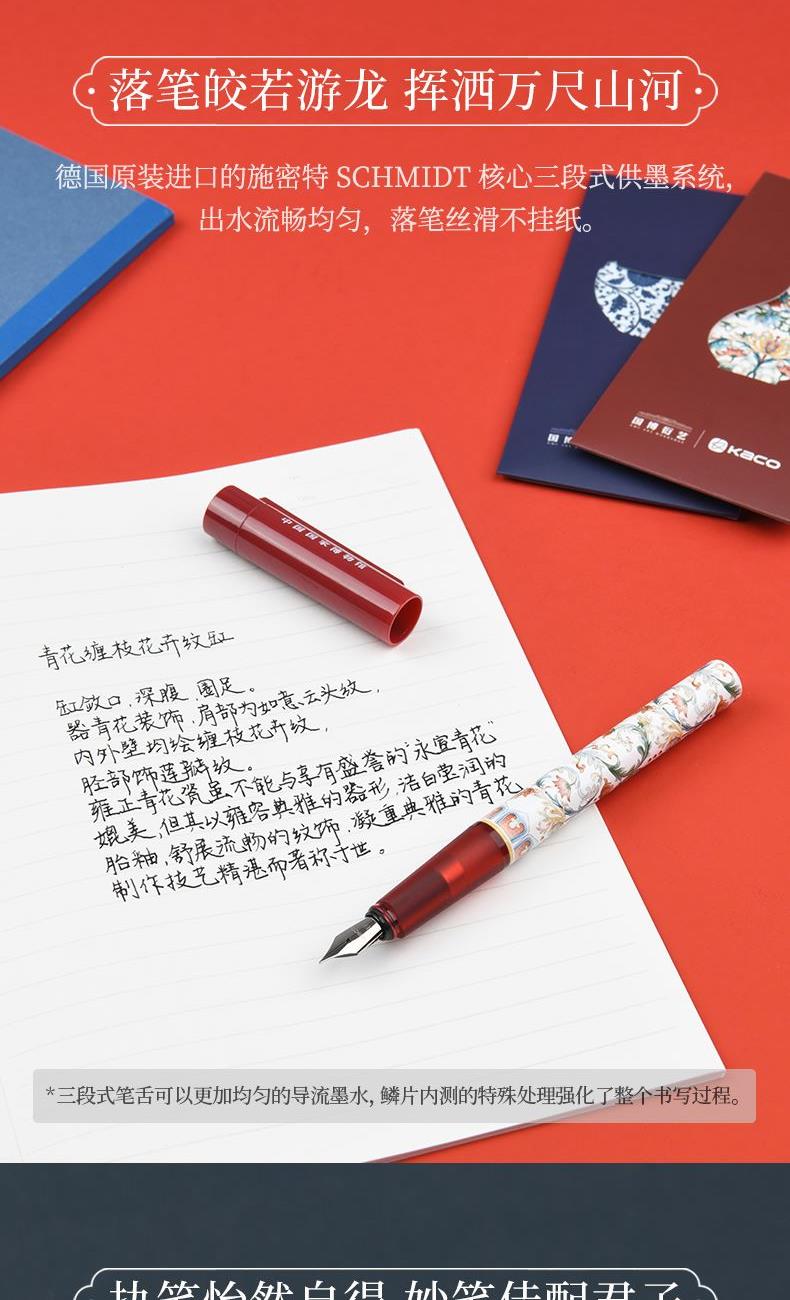 落笔皎若游龙 挥洒万尺山河
德国原装进口的施密特 SCHMIDT 核心三段式供墨系统,
出水流畅均匀，落笔丝滑不挂纸。
国博衍艺
KACO
国博
中国国家博物馆
青花缠枝花卉纹缸
缸敛口,深腹,圈足。
器青花装饰,肩部内如意云头纹,
内外壁均绘缠枝花卉纹,
胫部饰莲瓣纹。
雍正青花瓷虽不能与享有盛誉的"永宣青花"
媲美,但其以雍容典雅的器形,洁白莹润的
胎釉,舒展流畅的纹饰,凝重典雅的青花
制作技艺精湛而著称于世。
*三段式笔舌可以更加均匀的导流墨水, 鳞片内测的特殊处理强化了整个书写过程。
执笔怡然自得 妙笔佳配君子